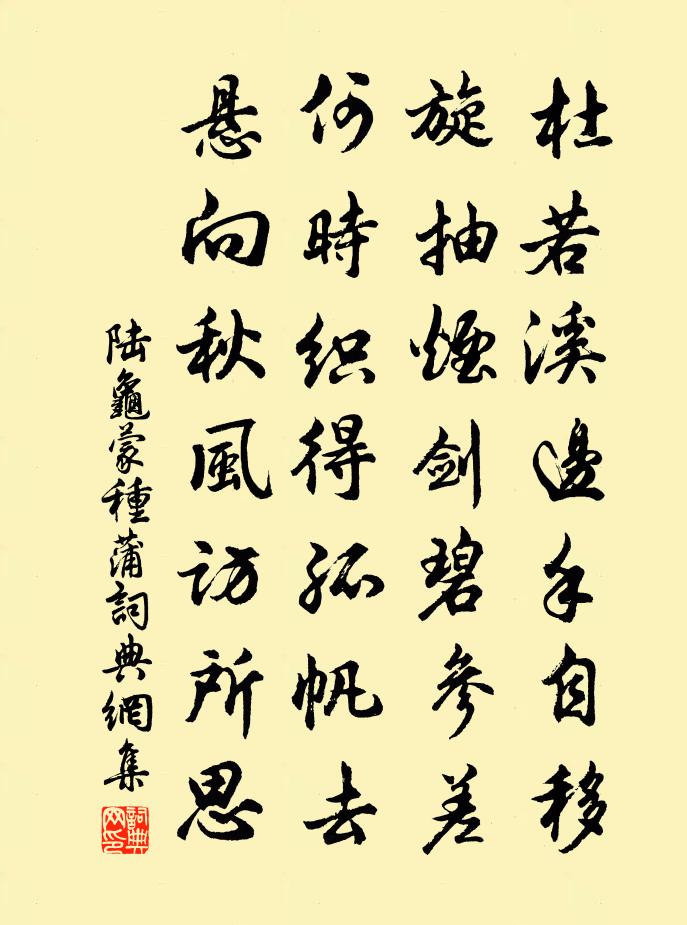 杜若溪邊手自移
旋抽煙剑碧參差
何時织得孤帆去
悬向秋風访所思
陆龜蒙種蒲詞典網集
詞典网印